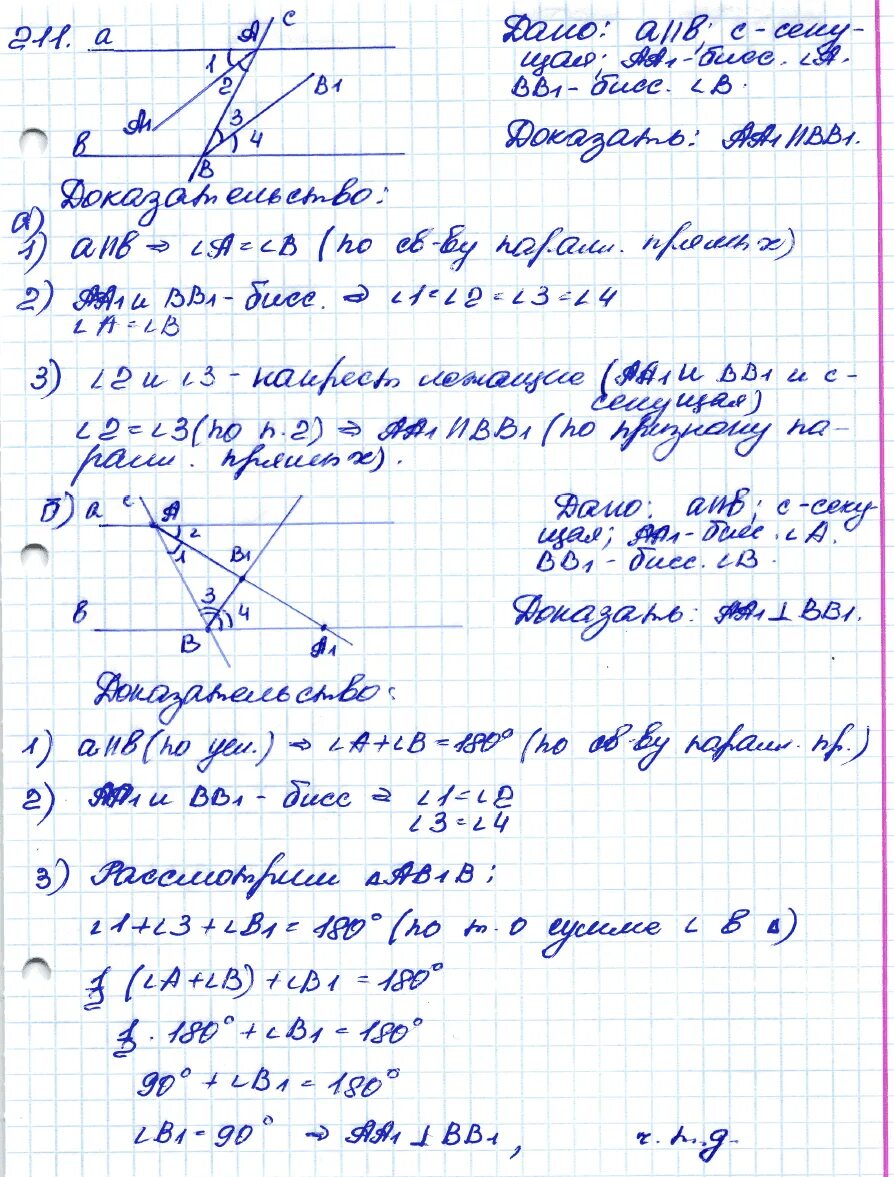 211. a A C
1
2
3 4
A1 B1
в B
Дано: a||в; с-секу-
щая; AA1-бисс. ∠A.
BB1-бисс. ∠B.
Доказать: AA1||BB1.
Доказательство:
а)
1) a||в ⇒ ∠A=∠B (по св-ву паралл. прямых)
2) AA1 и BB1-бисс. ⇒ ∠1=∠2=∠3=∠4
∠A=∠B
3) ∠2 и ∠3 - накрест лежащие (AA1 и BB1 и с-
секущая)
∠2=∠3 (по п.2) ⇒ AA1||BB1 (по признаку па-
ралл. прямых).
б) a c A
2
1
B1
3 4
в B A1
Дано: a||в; с-секу-
щая; AA1-бисс. ∠A.
BB1-бисс. ∠B.
Доказать: AA1⊥BB1.
Доказательство:
1) a||в (по усл.) ⇒ ∠A+∠B=180° (по св-ву паралл. пр.)
2) AA1 и BB1-бисс ⇒ ∠1=∠2
∠3=∠4
3) Рассмотрим △AB1B:
∠1+∠3+∠B1=180° (по т. о сумме ∠ в △)
(∠A+∠B)+∠B1=180°
· 180°+∠B1=180°
90°+∠B1=180°
∠B1=90° ⇒ AA1⊥BB1, ч.т.д.